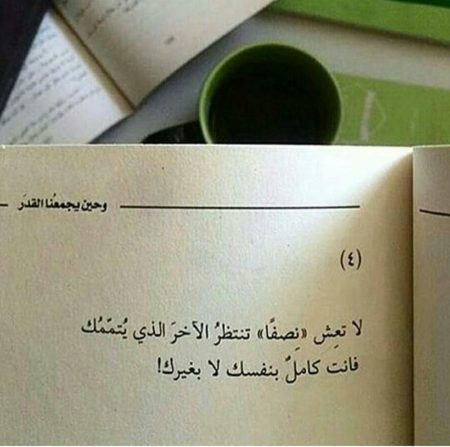 وحين يجمعُنا القدَر
(٤)
لا تعِش «نِصفًا» تنتظرُ الآخرَ الذي يُتمّمُك
فانت كاملٌ بنفسك لا بغيرك!